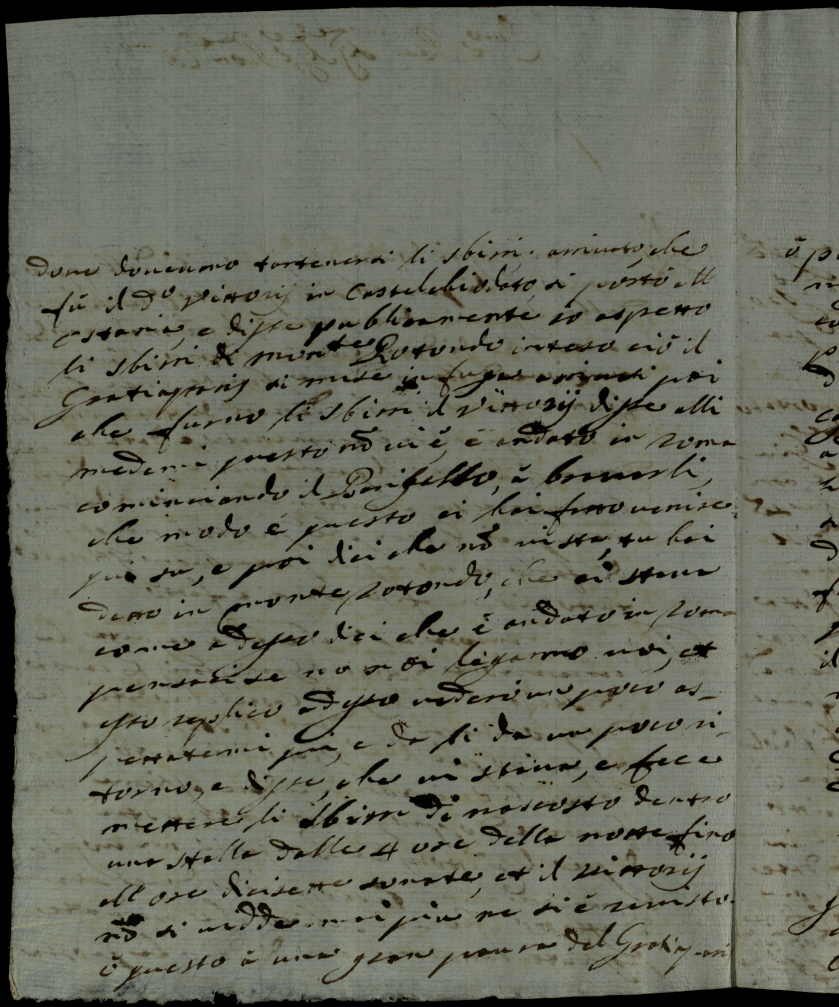 dove doveuano trattenersi li sbirri, arriuato, che
fù il do Vittorij in Castelchiodato, si portò all
ostaria, e disse publicamente io aspetto
li sbirri di monte Rotondo inteso ciò il
Gratiaparis si mise in fuga arriuati poi
che furno li sbirri il Vittorij disse alli
medemi questo nō ui è, è andato in roma
cominciando il à brauarli,
che modo è questo ci hai fatto uenire
quà su, e poi dici che nō ui sta, tu hai
detto in monte rotondo, che ci staua
come adesso dici che è andato in roma
pensaci se no noi legamo uoi, et
esso replicò adesso uederò un poco as=
pettatemi qui, e da lì da un poco ri,
tornò, e disse, che ui stiua, e fece
mettere li sbirri di nascosto dentro
una stalla dalle 4 ore della notte fino
all ore dicisette sonate, et il Vittorij
nō si uedde mai più ne si è reuisto.
è questo à una gran paura del